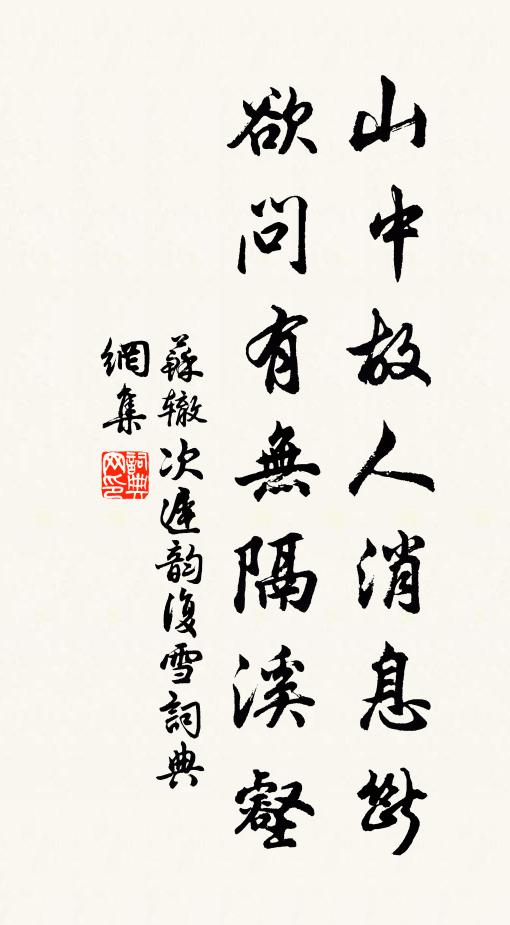 山中故人消息斷
欲問有無隔溪壑
蘇轍次遲韵復雪詞典
網集
詞典网印